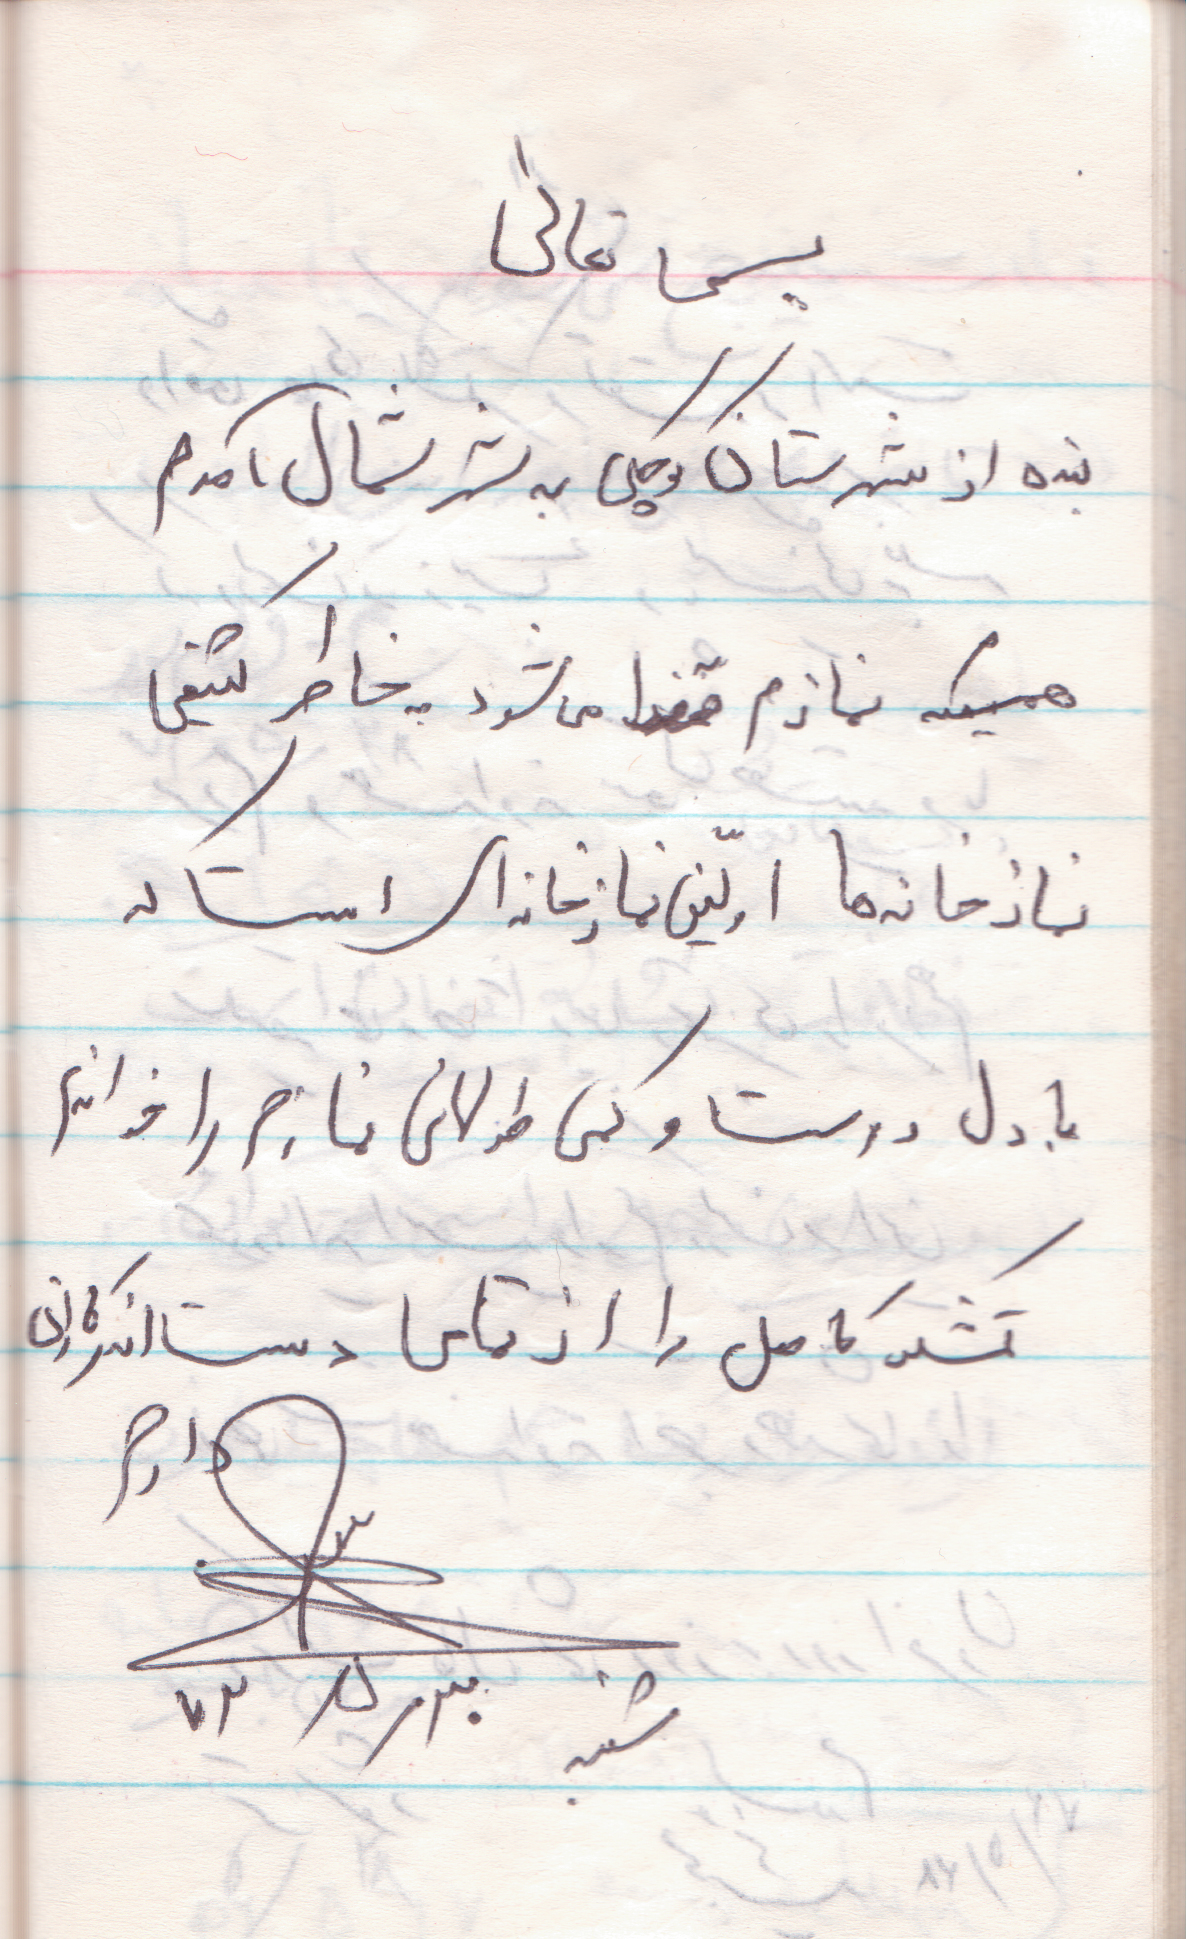 بسمه تعالی
بنده از شهرستان کوچکی به شهر شمال آمدم
همیکه نمازم قضا می‌شود به خاطر کثیفی
نمازخانه‌ها اولّین نمازخانه‌ای است که
با دل درست و کمی طولانی نمازم را خواندم
تشکر کامل را از تمامی دست اندرکارانی
دارم
شنبه ۳۰ / ۵ / ۷۲